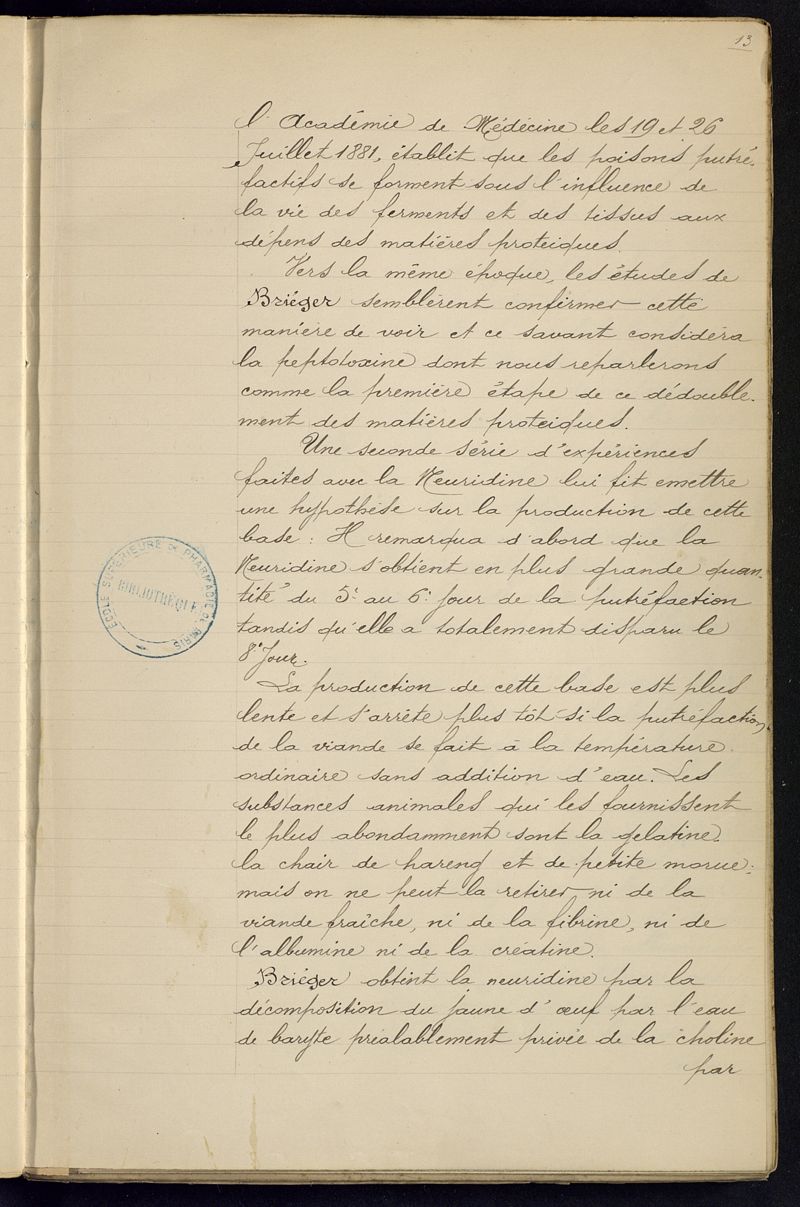 13
l'Académie de Médécine les 19 et 26
Juillet 1881, établit que les poisons putré-
factifs se forment sous l'influence de
la vie des ferments et des tissus aux
dépens des matières protéiques.
Vers la même époque, les études de
Briéger semblèrent confirmer cette
manière de voir et ce savant considéra
la peptotoxine dont nous reparlerons
comme la première étape de ce dédouble-
ment des matières protéiques.
Une seconde série d'expériences
faites avec la Neuridine lui fit emettre
une hypothèse sur la production de cette
base : Il remarqua d'abord que la
Neuridine s'obtient en plus grande quan-
tité du 5e au 6e jour de la putréfaction
tandis qu'elle a totalement disparu le
8e Jour.
La production de cette base est plus
lente et s'arrête plus tôt si la putréfaction
de la viande se fait à la température
ordinaire sans addition d'eau. Les
substances animales qui les fournissent
le plus abondamment sont la gelatine
la chair de hareng et de petite morue;
mais on ne peut la retirer ni de la
viande fraîche, ni de la fibrine, ni de
l'albumine ni de la créatine.
Briéger obtint la neuridine par la
décomposition du jaune d'œuf par l'eau
de baryte préalablement privée de la choline
par
ECOLE SUPERIEURE DE PHARMACIE DE PARIS
BIBLIOTHEQUE